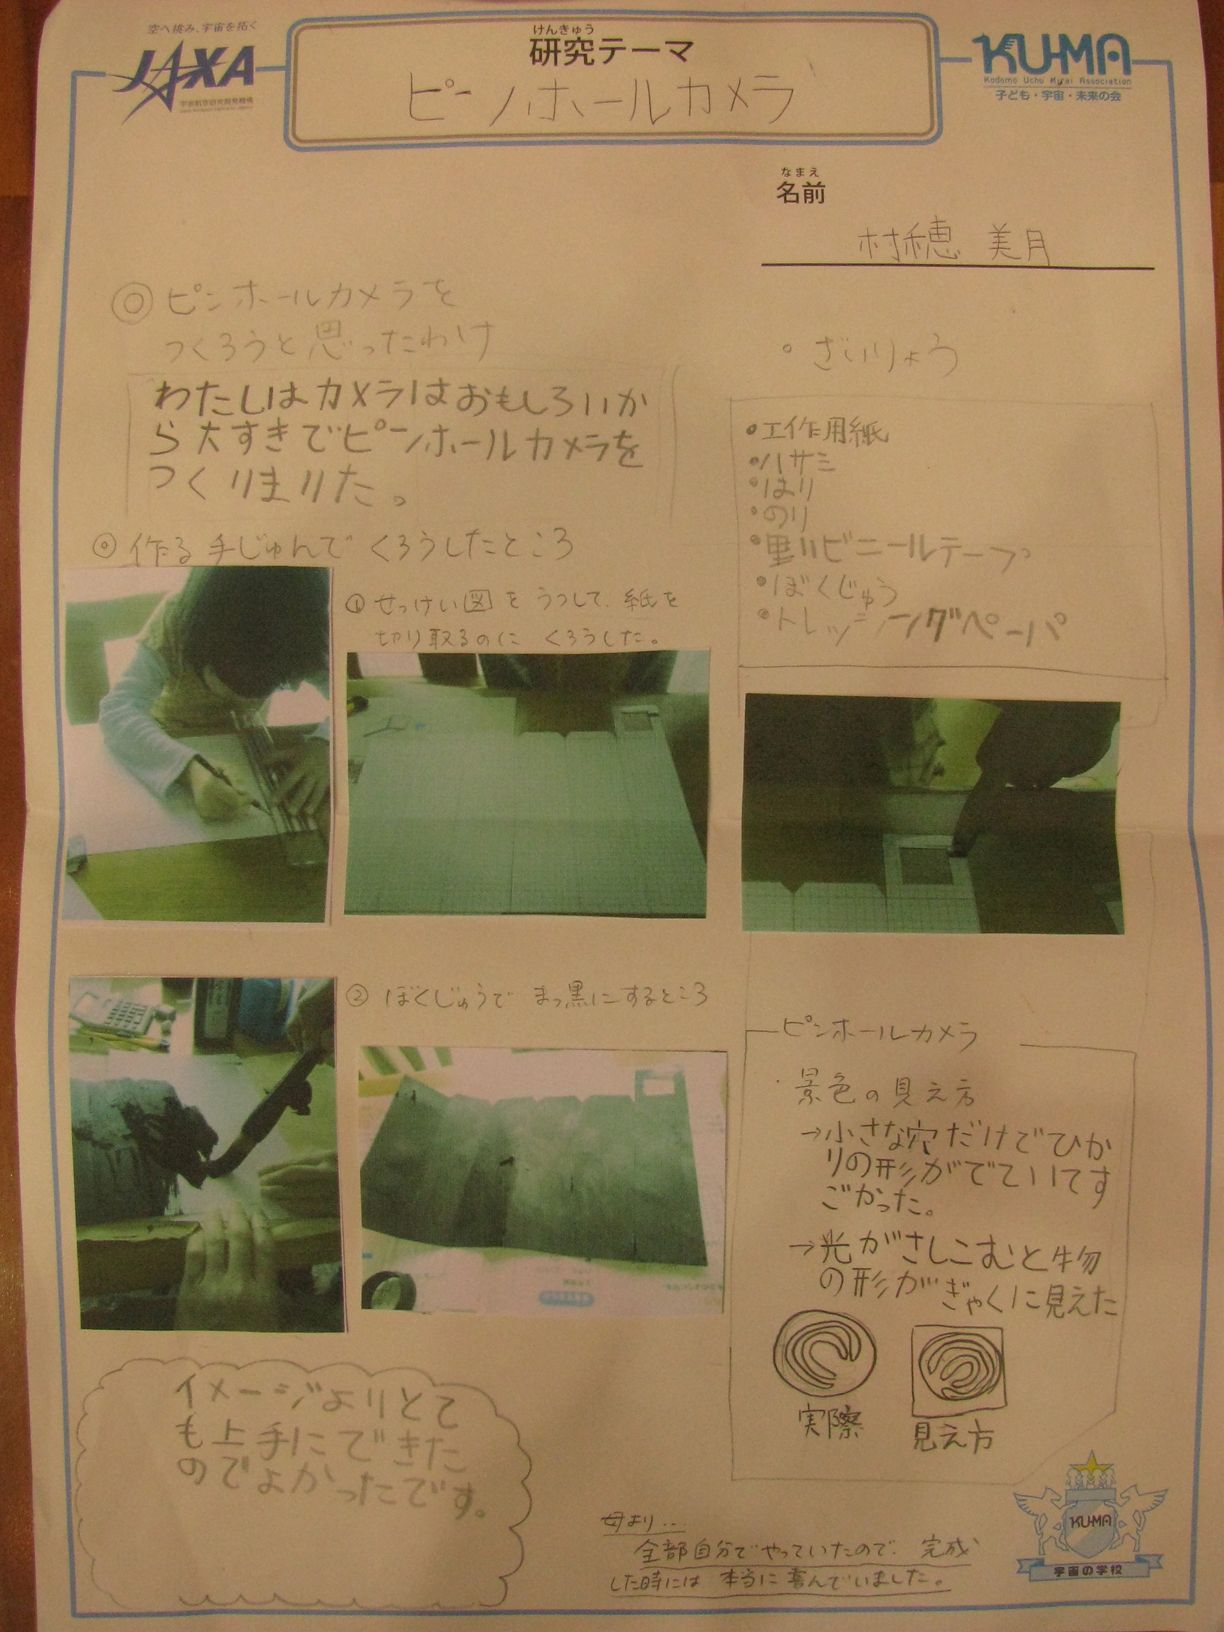 空へ挑み、宇宙を拓く
JAXA
宇宙航空研究開発機構
けんきゅう
研究テーマ
ピンホールカメラ
KU-MA
Kodomo Uchu Mirai Association
子ども・宇宙・未来の会
なまえ
名前
村穂 美月
◎ピンホールカメラを
つくろうと思ったわけ
わたしはカメラはおもしろいか
ら大すきでピンホールカメラを
つくりました。
◎作る手じゅんで くろうしたところ
① せっけい図をうつして、紙を
切り取るのに くろうした。
② ぼくじゅうで まっ黒にするところ
イメージよりとて
も上手にできた
のでよかったです。
・ざいりょう
・工作用紙
・ハサミ
・はり
・のり
・黒いビニールテープ
・ぼくじゅう
・トレッシングペーパ
ピンホールカメラ
・景色の見え方
→小さな穴だけでひか
りの形がでていてす
ごかった。
→光がさしこむと物
の形がぎゃくに見えた
実際
見え方
母より…
全部自分でやっていたので、完成
した時には 本当に喜んでいました。
KU-MA
宇宙の学校